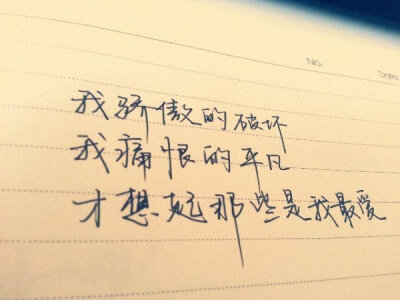 No.
Date
我骄傲的破坏
我痛恨的平凡
才想起那些是我最爱